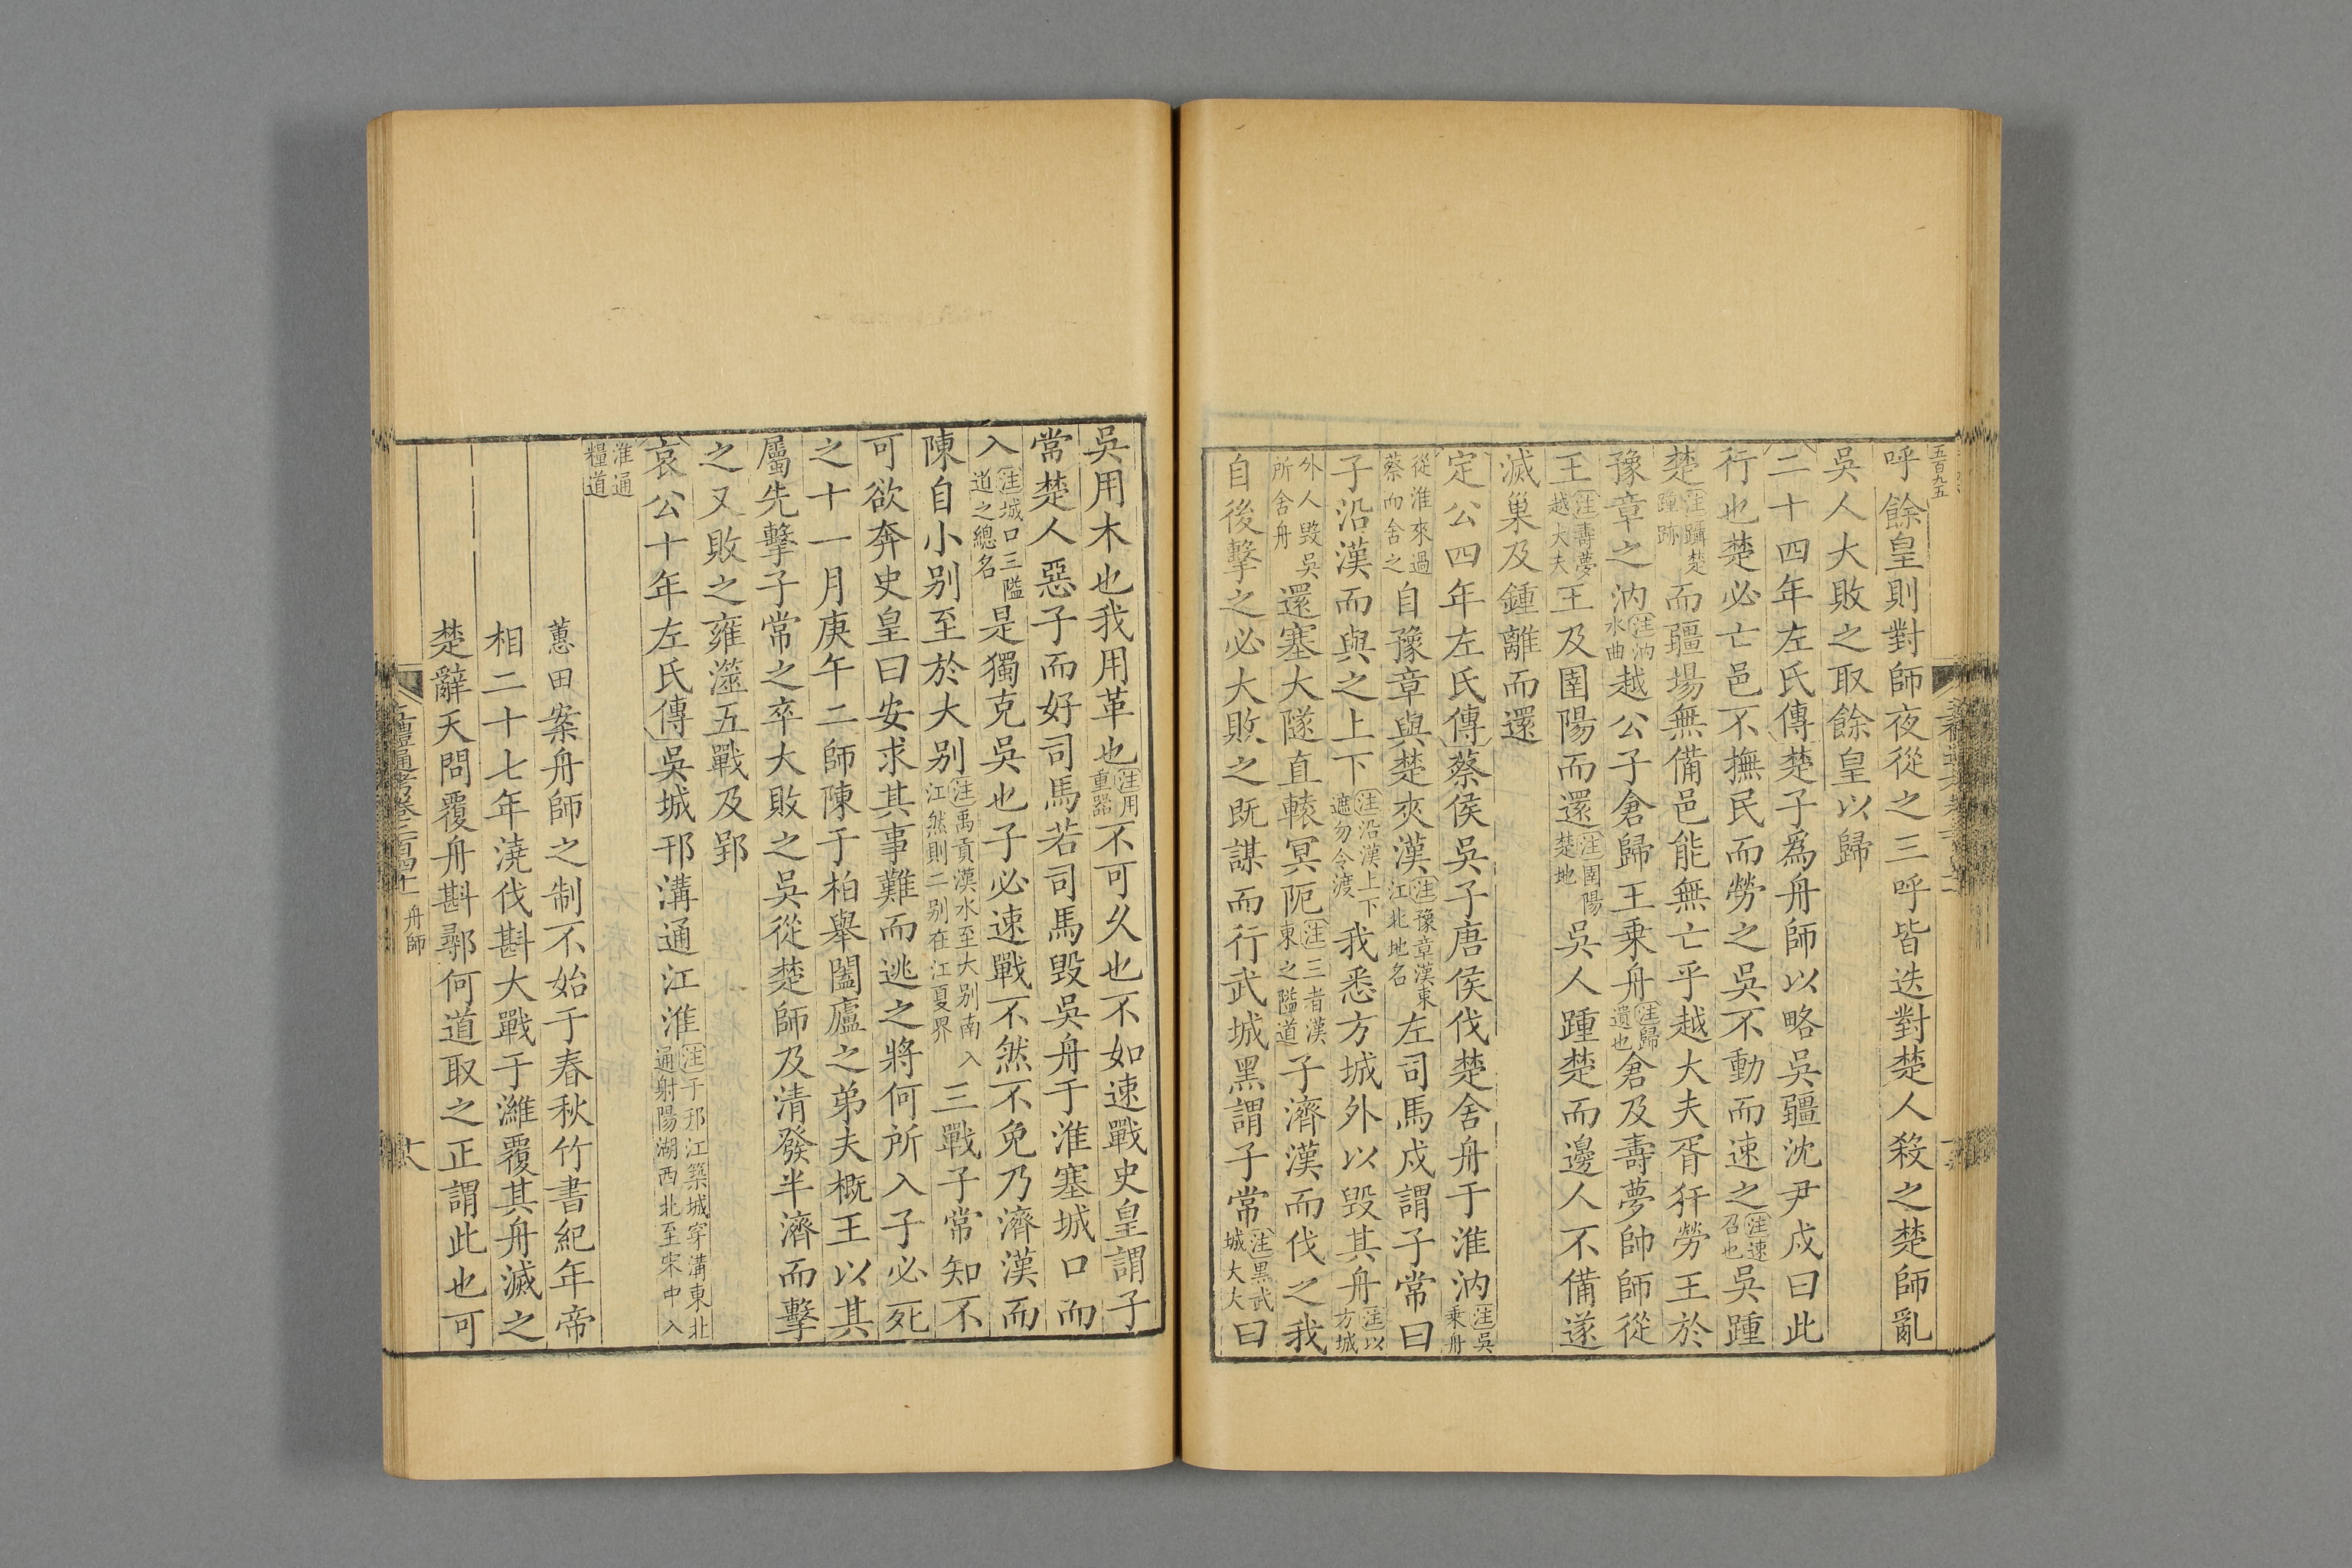 五百九五
呼餘皇則對師夜從之三呼皆迭對楚人殺之楚師亂
吳人大敗之取餘皇以歸
二十四年左氏傳楚子爲舟師以略吳疆沈尹戌曰此
行也楚必亡邑不撫民而勞之吳不動而速之注速召也吳踵
楚注躡楚踵跡而疆場無備邑能無亡乎越大夫胥犴勞王於
豫章之汭注汭水曲越公子倉歸王乘舟注歸遺也倉及壽夢帥師從
王注壽夢越大夫王及圉陽而還注圉陽楚地吳人踵楚而邊人不備遂
滅巢及鍾離而還
定公四年左氏傳蔡侯吳子唐侯伐楚舍舟于淮汭注吳乘舟
從淮來過蔡而舍之自豫章與楚夾漢注豫章漢東江北地名左司馬戌謂子常曰
子沿漢而與之上下注沿漢上下遮勿令渡我悉方城外以毀其舟注以方城
外人毀吳所舍舟還塞大隧直轅冥阨注三者漢東之隘道子濟漢而伐之我
自後擊之必大敗之既謀而行武城黑謂子常注黑武城大大曰
吳用木也我用革也注用重器不可久也不如速戰史皇謂子
常楚人惡子而好司馬若司馬毀吳舟于淮塞城口而
入注城口三隘道之總名是獨克吳也子必速戰不然不免乃濟漢而
陳自小别至於大别注禹貢漢水至大别南入江然則二别在江夏界三戰子常知不
可欲奔史皇曰安求其事難而逃之將何所入子必死
之十一月庚午二師陳于柏舉闔廬之弟夫概王以其
屬先擊子常之卒大敗之吳從楚師及清發半濟而擊
之又敗之雍澨五戰及郢
哀公十年左氏傳吳城邗溝通江淮注于邗江築城穿溝東北通射陽湖西北至宋中入
淮通糧道
蕙田案舟師之制不始于春秋竹書紀年帝
相二十七年澆伐斟大戰于濰覆其舟滅之
楚辭天問覆舟斟鄩何道取之正謂此也可
五禮通考卷二百四十一 舟師